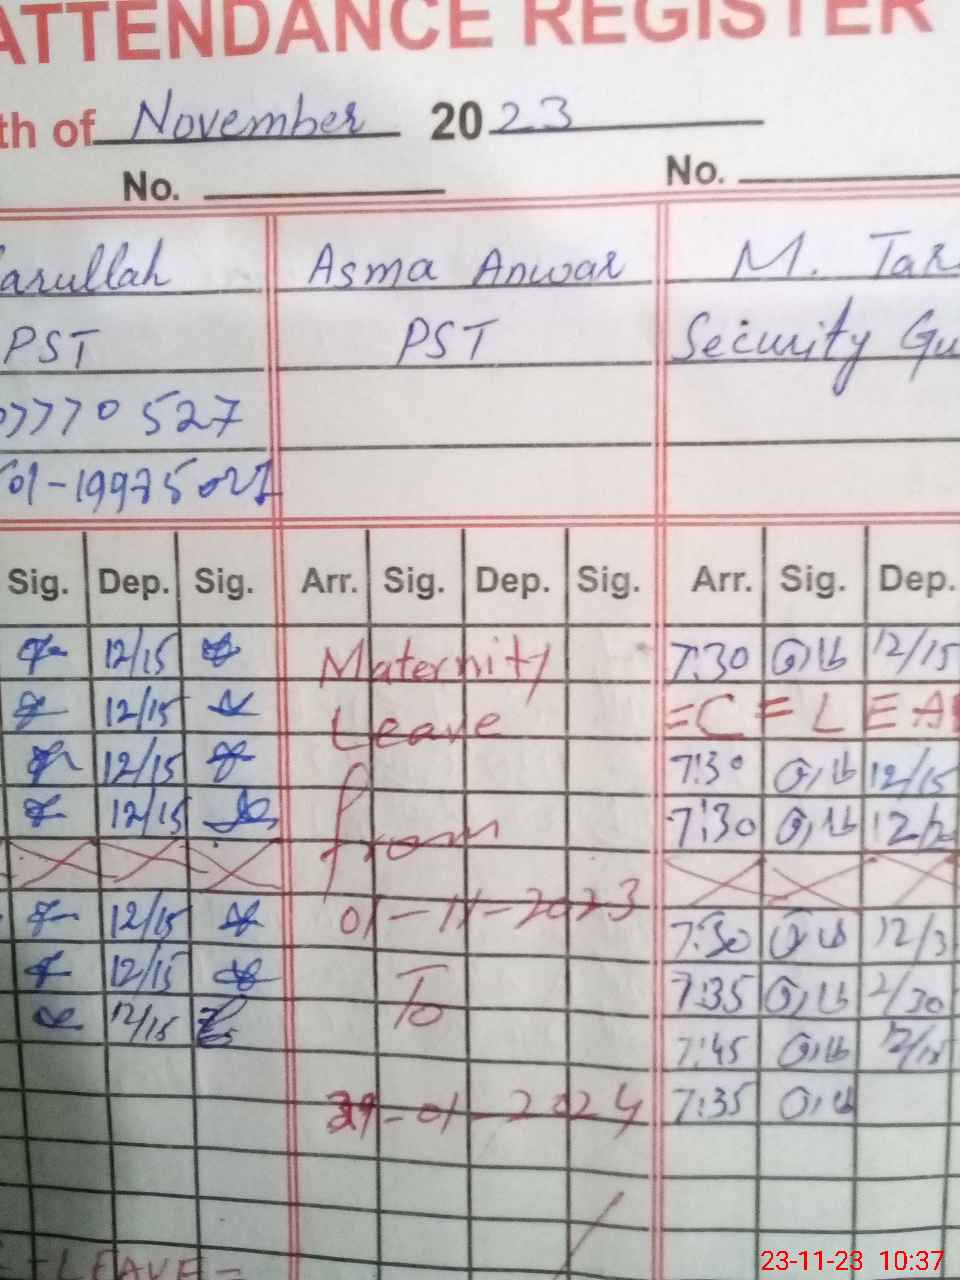 ATTENDANCE REGISTER
th of November 2023
No. No.
arullah Asma Anwar M. Tar
PST PST Security Gu
7770 527
01-19975
Sig. Dep. Sig. Arr. Sig. Dep. Sig. Arr. Sig. Dep.
12/15 Maternity 7:30 12/15
12/15 Leave =C=LEA
12/15 7:30 12/15
12/15 from 7:30
12/15 01-11-2023 7:30 12/3
12/15 To 7:35 2/30
12/15 7:45 12/15
-01-2024 7:35
LEAVE=
23-11-23 10:37